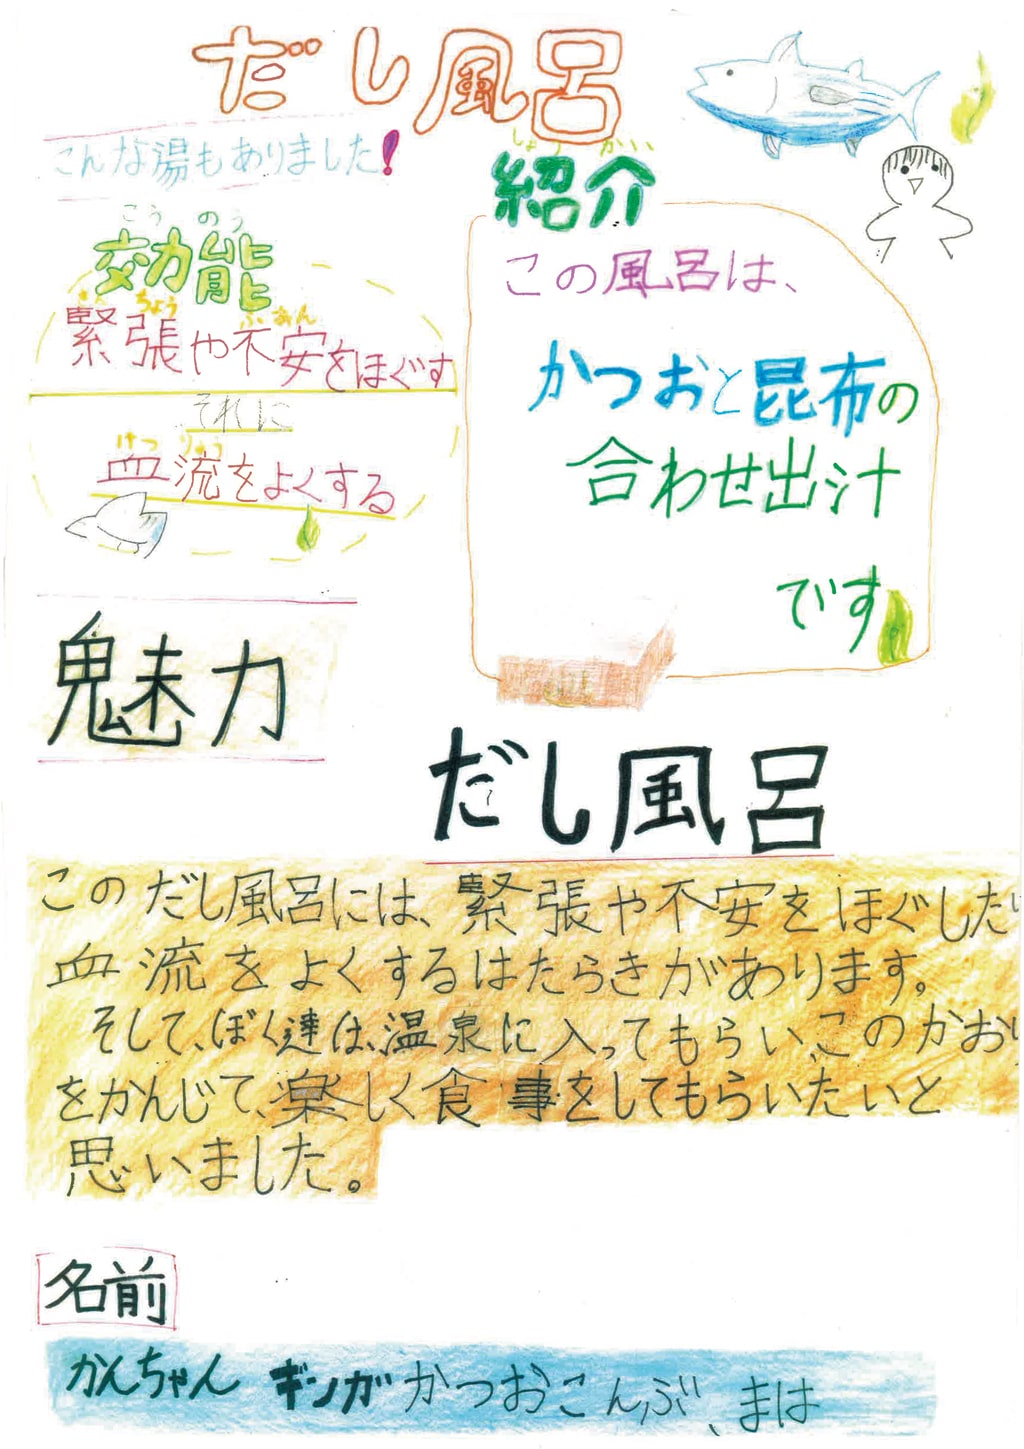 だし風呂
こんな湯もありました!
こうのう
効能
きんちょう ふあん
緊張や不安をほぐす
それに
けつりゅう
血流をよくする
しょうかい
紹介
この風呂は、
かつおと昆布の
合わせ出汁
です
魅力
だし風呂
このだし風呂には、緊張や不安をほぐした
血流をよくするはたらきがあります。
そして、ぼく達は、温泉に入ってもらい、このかおり
をかんじて、楽しく食事をしてもらいたいと
思いました。
名前
かんちゃん ギンガ かつおこんぶ、まは